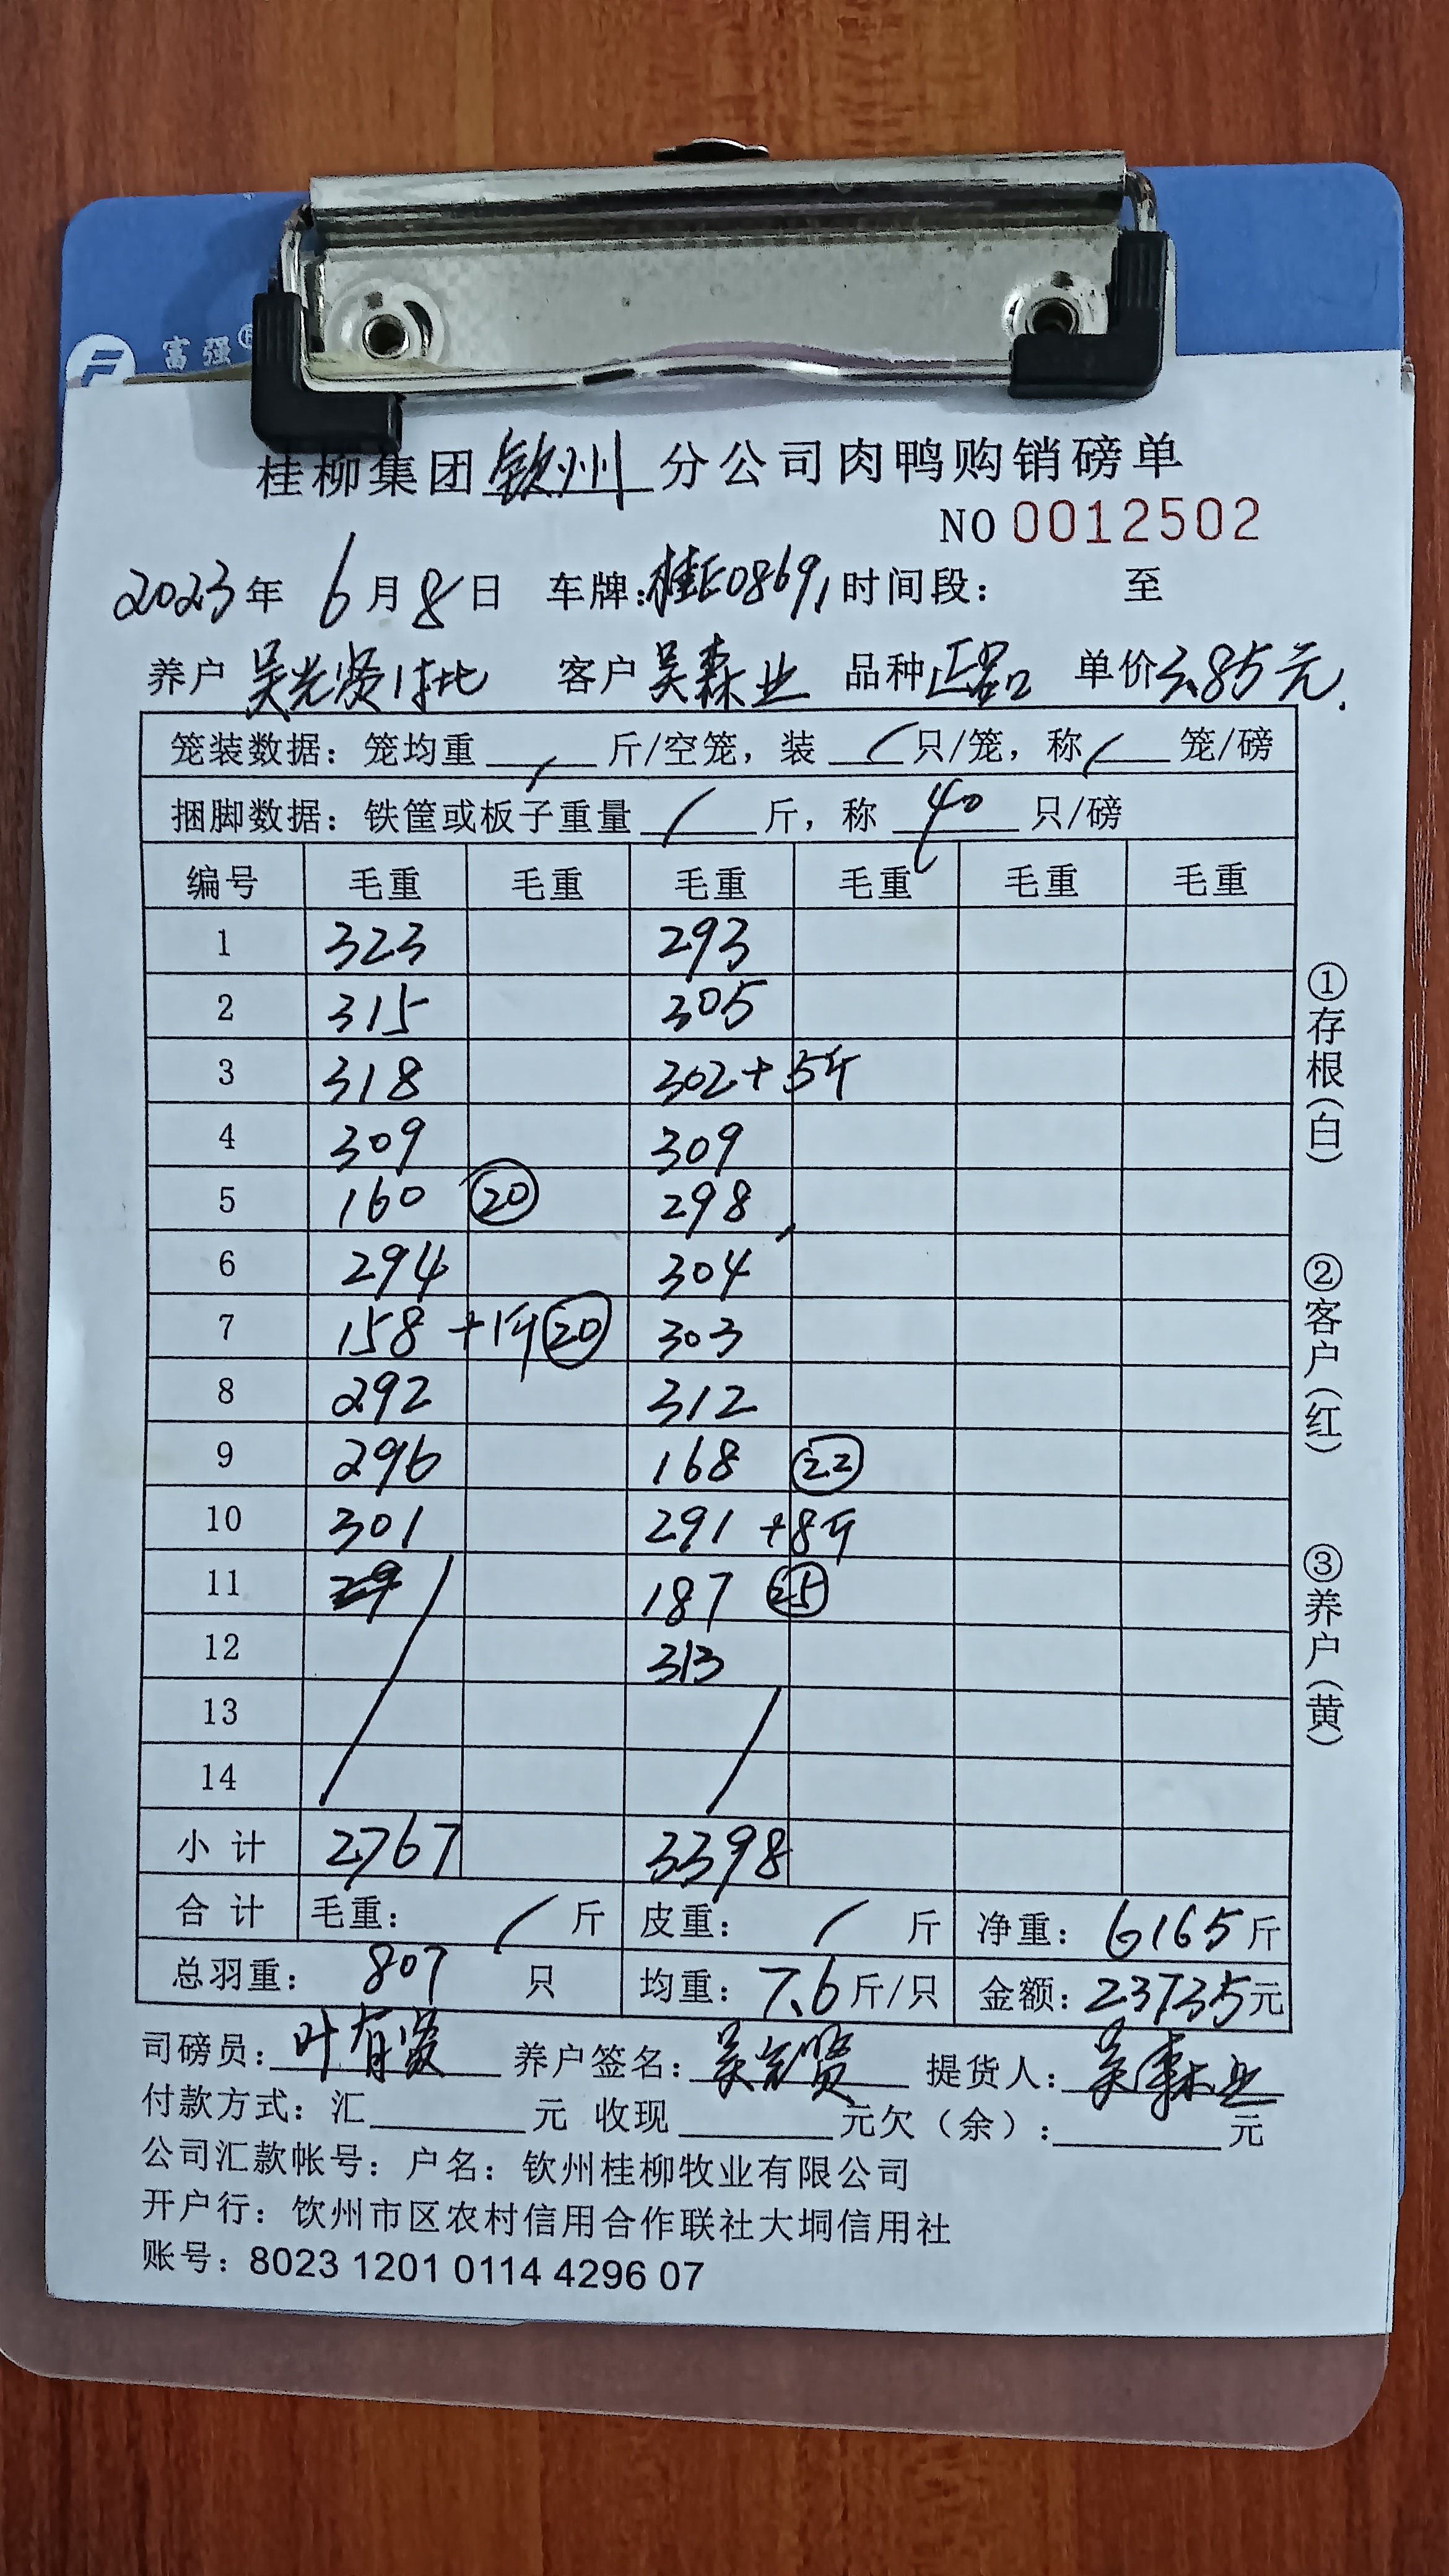 富强®
桂柳集团钦州分公司肉鸭购销磅单
NO 0012502
2023年 6月8日 车牌:桂E08691 时间段: 至
养户 吴光贤 客户 吴森业 品种 正品 单价3.85元.
笼装数据:笼均重 / 斤/空笼,装 / 只/笼,称 / 笼/磅
捆脚数据:铁筐或板子重量 / 斤,称 40 只/磅
编号 毛重 毛重 毛重 毛重 毛重 毛重
1 323 293
2 315 305
3 318 302+5斤
4 309 309
5 160 ⑳ 298
6 294 304
7 158 +1斤⑳ 303
8 292 312
9 296 168 ㉒
10 301 291 +8斤
11 29 187 ㉕
12 313
13
14
小计 2767 3398
合计 毛重: / 斤 皮重: / 斤 净重: 6165斤
总羽重: 807 只 均重: 7.6斤/只 金额: 23735元
司磅员: 叶有贤 养户签名: 吴光贤 提货人: 吴森业
付款方式:汇 元 收现 元欠(余): 元
公司汇款帐号:户名:钦州桂柳牧业有限公司
开户行:钦州市区农村信用合作联社大垌信用社
账号:8023 1201 0114 4296 07
①存根(白)
②客户(红)
③养户(黄)